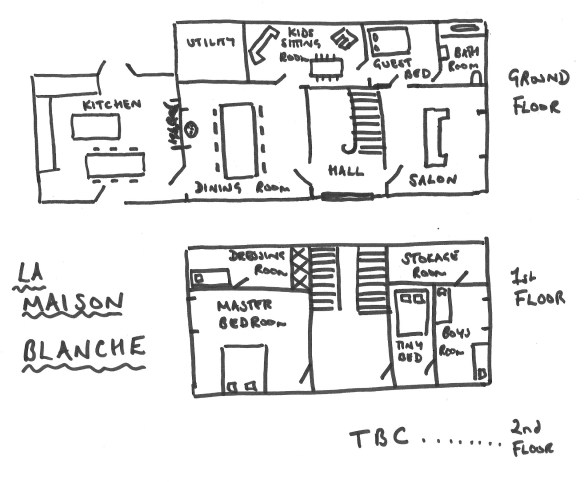 UTILITY
KIDS
SITTING
ROOM
GUEST
BED
BATH
ROOM
GROUND
FLOOR
KITCHEN
DINING ROOM
HALL
SALON
LA
MAISON
BLANCHE
DRESSING
ROOM
STORAGE
ROOM
1st
FLOOR
MASTER
BEDROOM
TINY
BED
BOYS
ROOM
TBC ........
2nd
FLOOR